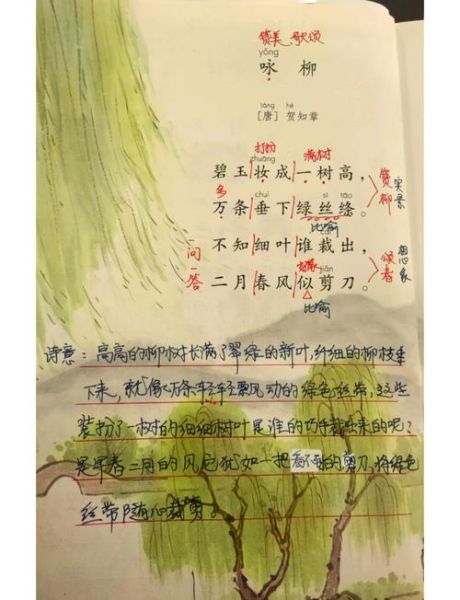 赞美、歌颂
yǒng
咏 柳
táng hè
[唐] 贺知章
打扮 满树
zhuāng
碧玉妆成一树高，
多 chuí sī tāo
万条垂下绿丝绦。
比喻
赞柳 实景
不知细叶谁裁出，
一问一答
jiǎn
二月春风似剪刀。
比喻
颂春 想象
诗意：高高的柳树长满了翠绿的新叶，纤细的柳枝垂
下来，就像万条轻轻飘动的绿色丝带，这些
装扮了一树的细细树叶是谁的巧手裁出来的呢？
是早春二月的风它犹如一把看不到的剪刀，将绿色
丝带随心裁剪。